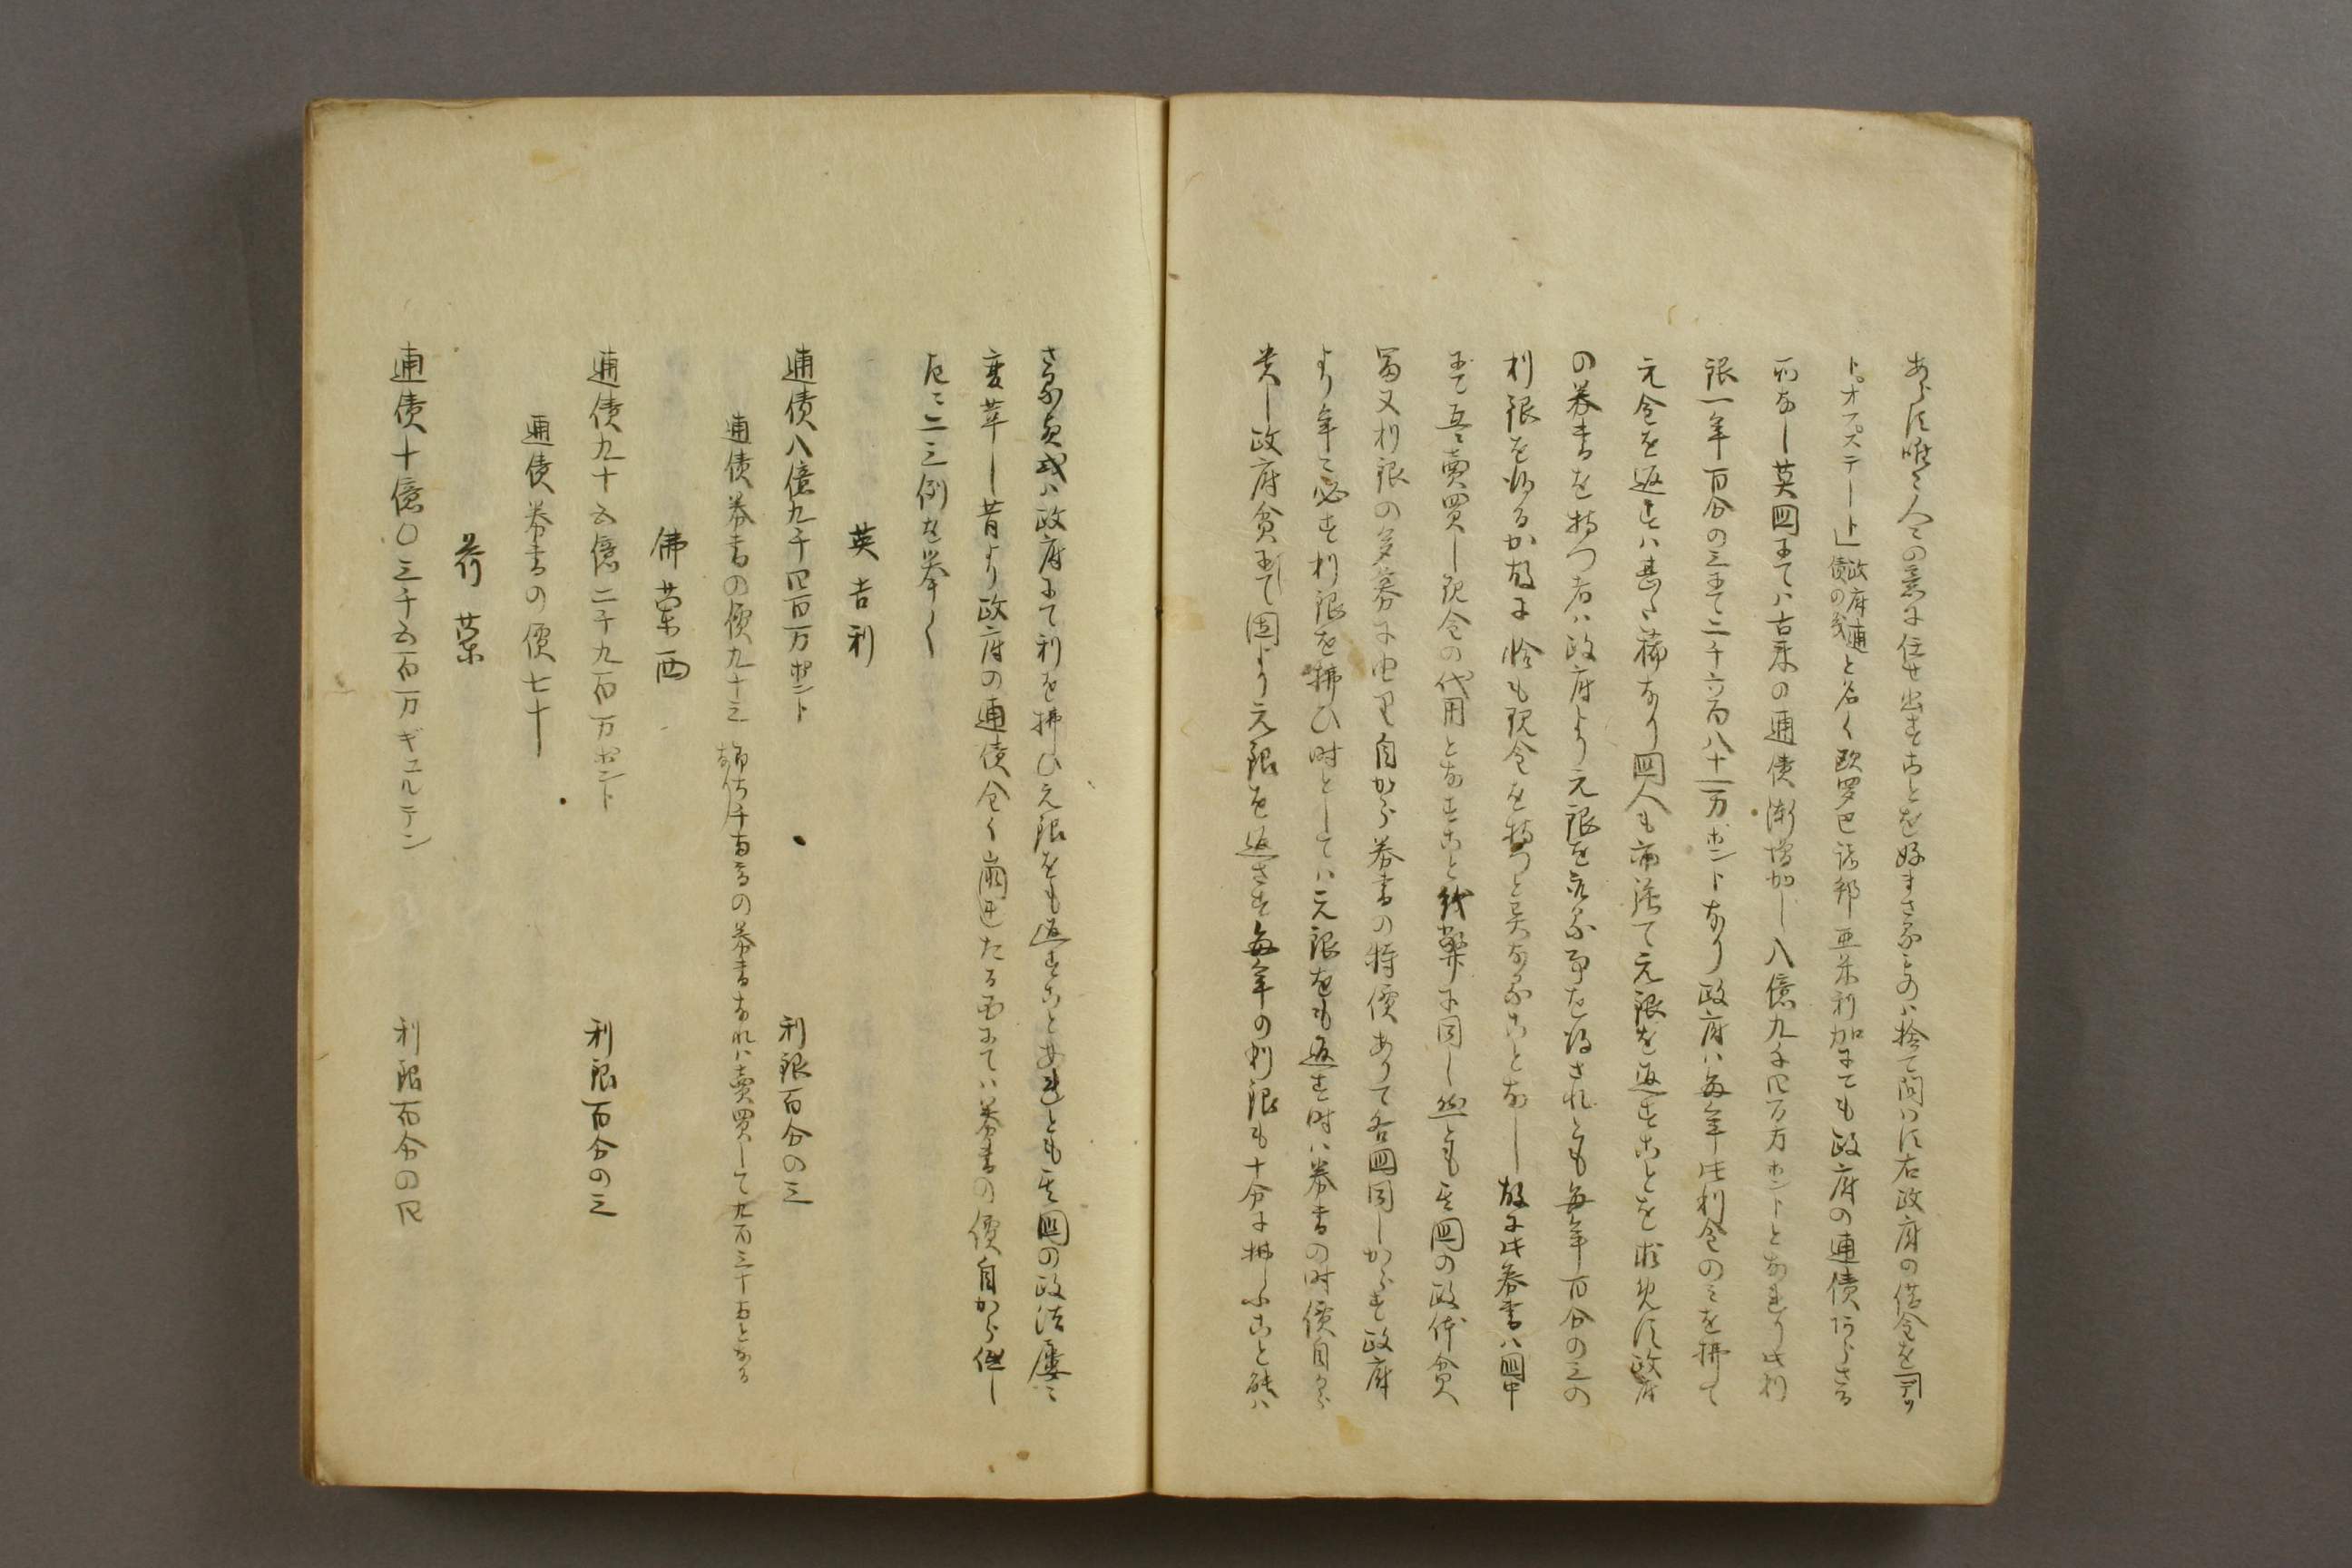 あらす唯々人々の意に任せ出すことを好まさるものハ捨て問ハす右政府の借金を「デッ
ト、オフ、ステート」政府逋債の義と名く欧羅巴諸邦亜米利加にても政府の逋債あらさる
所なし英国にてハ古来の逋債漸増加し八億九千四百万ポントとなれり此利
銀一年百分の三にて二千六百八十二万ポントなり政府ハ毎年此利金のミを拂て
元金を返すハ甚た稀なり国人も亦強て元銀を返すことを求めす政府
の券書を持つ者ハ政府より元銀を取る事を得されとも毎年百分の三の
利銀を得るか故に恰も現金を持つと異なることなし故に此券書ハ国中
にて互に賣買し現金の代用となすこと紙幣に同し然とも其国の政体貧
富又利銀の多寡に由り自から券書の時價ありて各国同しからす政府
より年々必す利銀を拂ひ時としてハ元銀をも返す時ハ券書の時價自から
貴し政府貧にして固より元銀を返さす毎年の利銀も十分に拂ふこと能ハ
さる歟或ハ政府にて利を拂ひ元銀をも返すことあれとも其国の政法屡々
変革し昔より政府の逋債全く崩れたる国にてハ券書の價自から低し
左に二三例を挙く
英吉利
逋債八億九千四百万ポント 利銀百分の三
逋債券書の價九十三 即ち千両の券書なれハ賣買して九百三十両となる
佛蘭西
逋債九十五億二千九百万ポント 利銀百分の三
逋債券書の價七十
荷蘭
逋債十億〇三千五百万ギュルテン 利銀百分の四